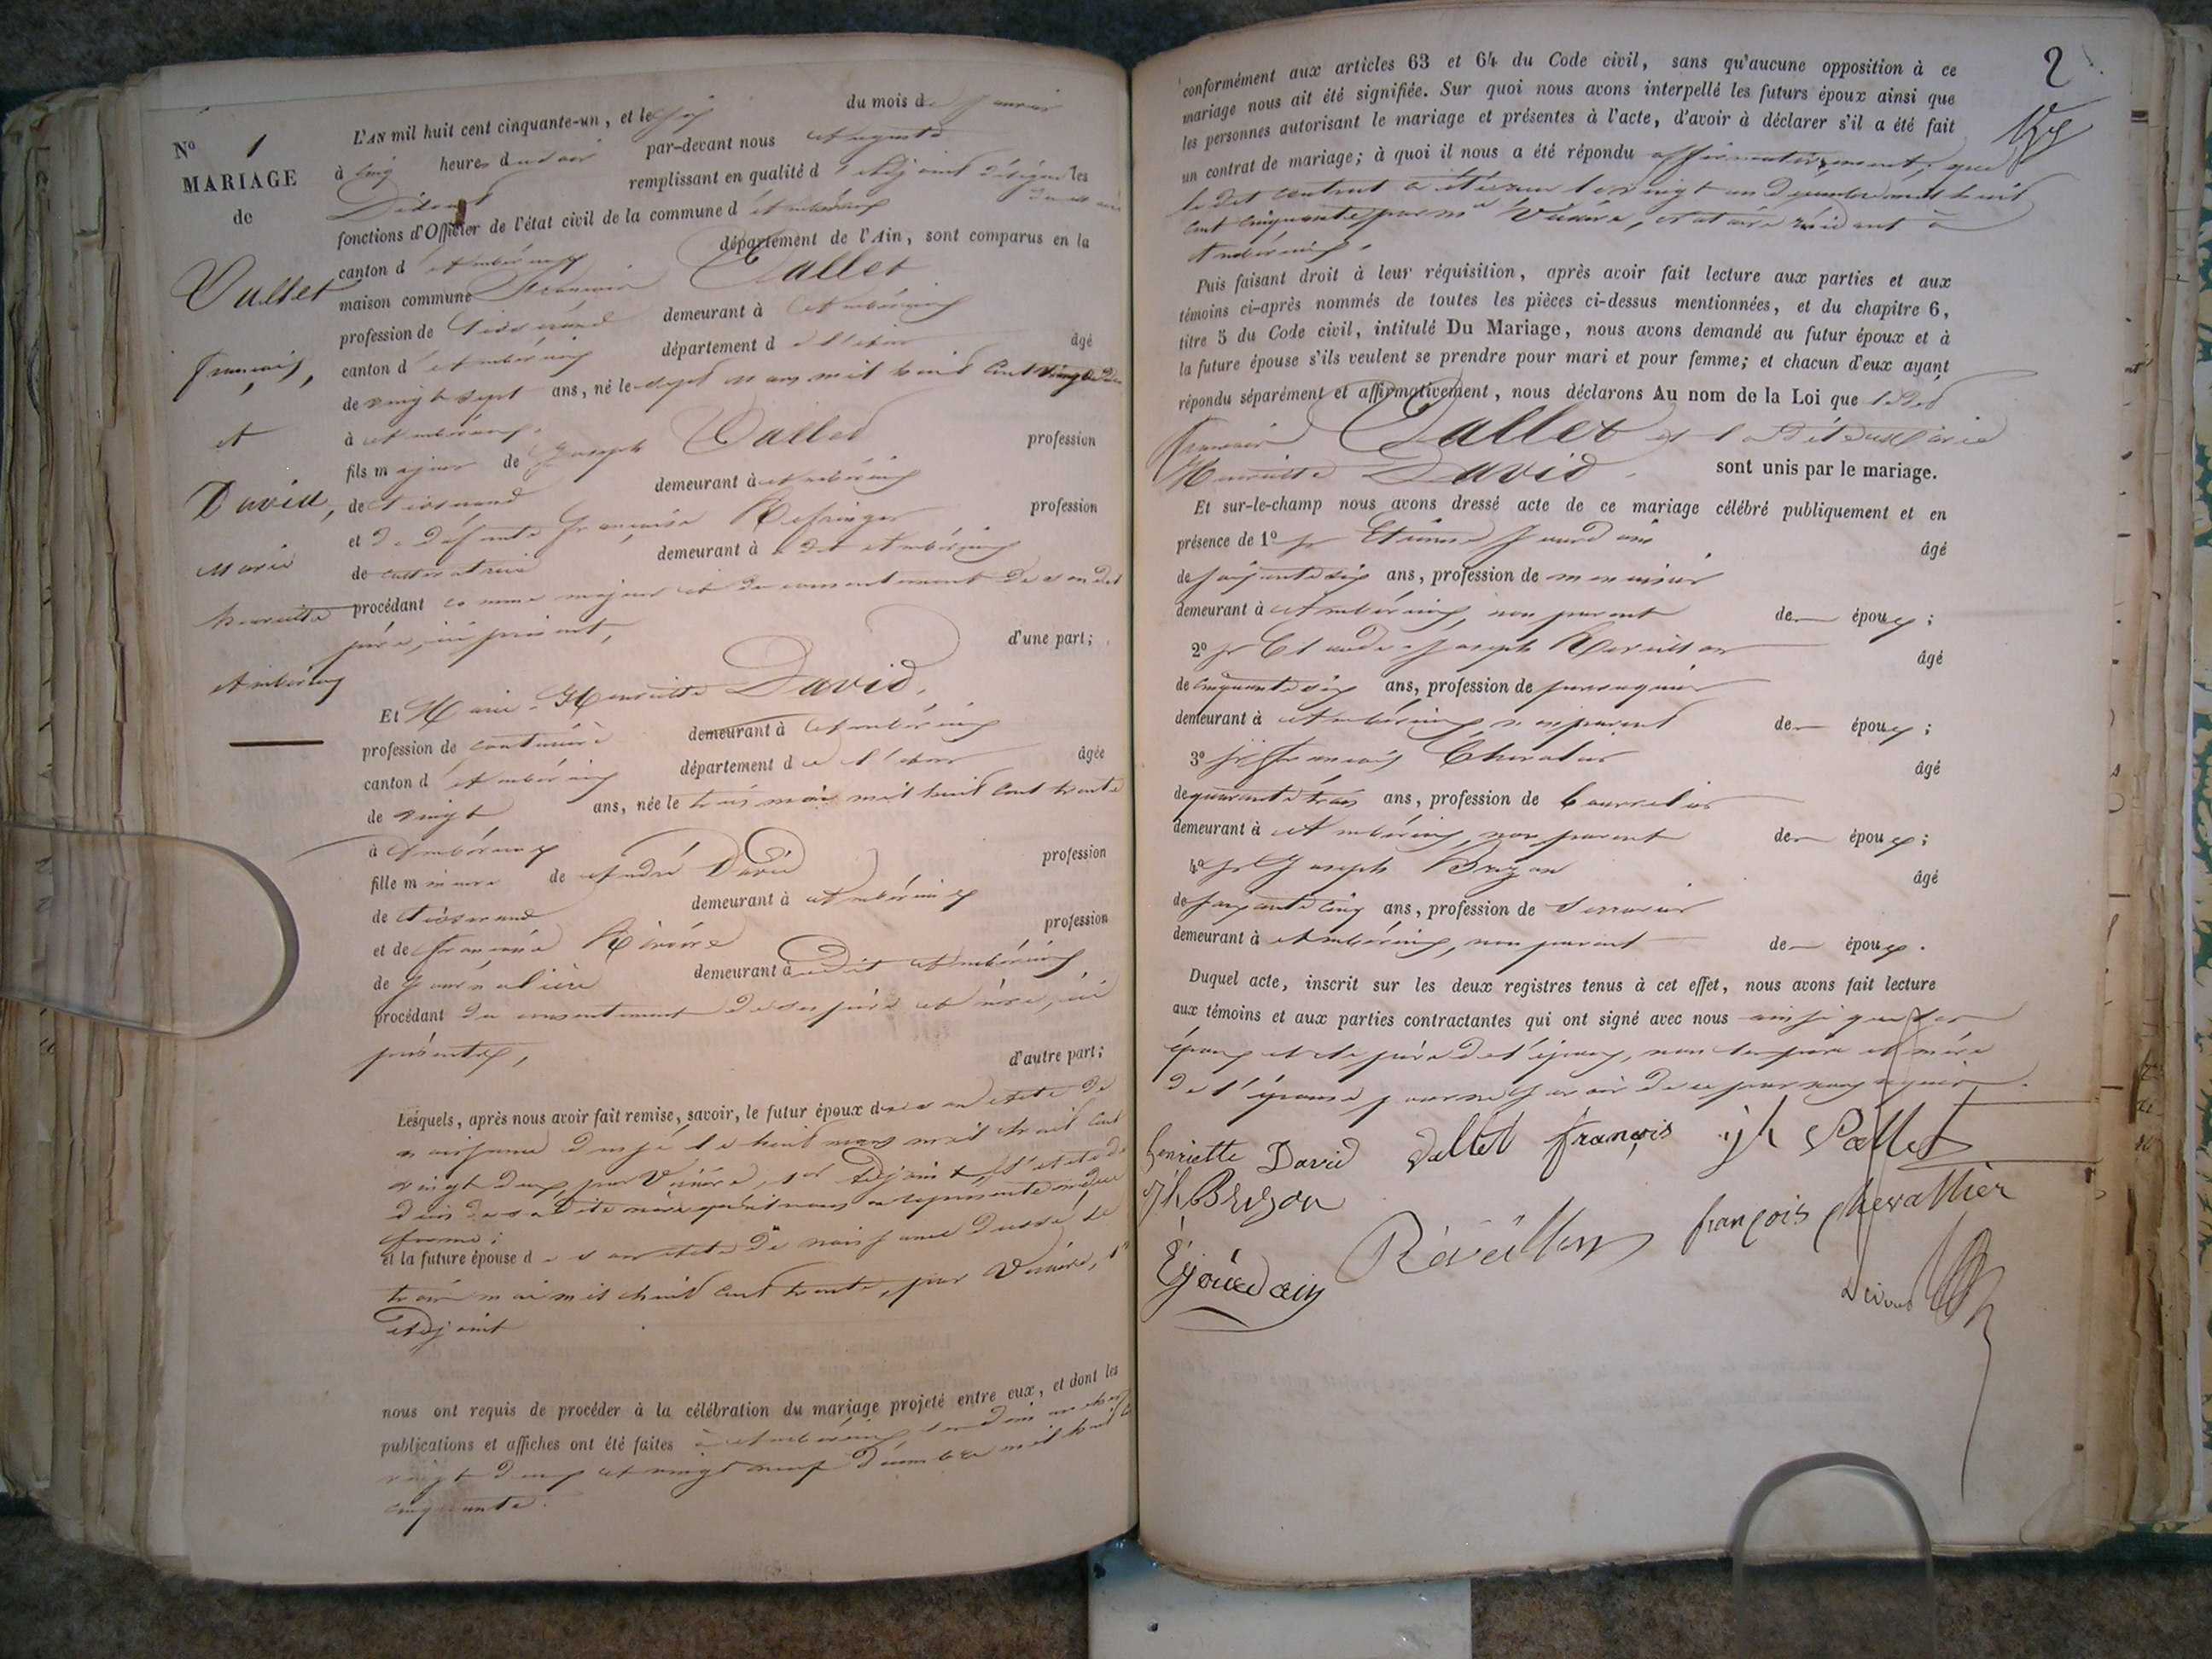 No 1
MARIAGE
de
Vallet
François,
et
David,
Marie
henriette
Ambérieux
L'AN mil huit cent cinquante-un, et le six du mois de Janvier
à cinq heures du soir par-devant nous Auguste
remplissant en qualité d'adjoint délégué les
fonctions d'Officier de l'état civil de la commune d'Ambérieux
canton d'Ambérieux département de l'Ain, sont comparus en la
maison commune François Vallet
profession de Tisserand demeurant à Ambérieux
canton d'Ambérieux département de l'Ain âgé
de vingt sept ans, né le sept mars mil huit cent vingt
à Ambérieux
fils majeur de Joseph Vallet profession
de tisserand demeurant à Ambérieux
et de défunte Françoise profession
de demeurant à Ambérieux
procédant comme majeur et du consentement de son dit
père, ici présent, d'une part;
Et Marie-Henriette David,
profession de couturière demeurant à Ambérieux
canton d'Ambérieux département de l'Ain âgée
de vingt ans, née le trois mai mil huit cent trente
à Ambérieux
fille mineure de André David profession
de tisserand demeurant à Ambérieux
et de Françoise Rivière profession
de Journalière demeurant à dit Ambérieux,
procédant du consentement de ses père et mère, ici
présents, d'autre part;
Lesquels, après nous avoir fait remise, savoir, le futur époux de son acte de
naissance dressé le huit mars mil huit cent
vingt deux, par adjoint, l'acte de
décès de sa dite mère
forme;
et la future épouse de son acte de naissance dressé le
trois mai mil huit cent trente, par
Adjoint
nous ont requis de procéder à la célébration du mariage projeté entre eux, et dont les
publications et affiches ont été faites à Ambérieux, les dimanches
vingt deux et vingt neuf décembre mil huit cent
cinquante.
2
conformément aux articles 63 et 64 du Code civil, sans qu'aucune opposition à ce
mariage nous ait été signifiée. Sur quoi nous avons interpellé les futurs époux ainsi que
les personnes autorisant le mariage et présentes à l'acte, d'avoir à déclarer s'il a été fait
un contrat de mariage; à quoi il nous a été répondu affirmativement, que
le dit contrat a été reçu le vingt un décembre mil huit
cent cinquante, par me notaire résidant à
Ambérieux.
Puis faisant droit à leur réquisition, après avoir fait lecture aux parties et aux
témoins ci-après nommés de toutes les pièces ci-dessus mentionnées, et du chapitre 6,
titre 5 du Code civil, intitulé Du Mariage, nous avons demandé au futur époux et à
la future épouse s'ils veulent se prendre pour mari et pour femme; et chacun d'eux ayant
répondu séparément et affirmativement, nous déclarons Au nom de la Loi que ledit
François Vallet et la dite Marie
Henriette David sont unis par le mariage.
Et sur-le-champ nous avons dressé acte de ce mariage célébré publiquement et en
présence de 1o sr Etienne Jourdain âgé
de soixante six ans, profession de menuisier
demeurant à Ambérieux, non parent de époux;
2o sr Claude-Joseph Reveillon âgé
de cinquante six ans, profession de perruquier
demeurant à Ambérieux, non parent de époux;
3o sr François Chevalier âgé
de quarante trois ans, profession de bourrelier
demeurant à Ambérieux, non parent de époux;
4o sr Joseph Bryon âgé
de soixante cinq ans, profession de serrurier
demeurant à Ambérieux, non parent de époux.
Duquel acte, inscrit sur les deux registres tenus à cet effet, nous avons fait lecture
aux témoins et aux parties contractantes qui ont signé avec nous ainsi que les
époux et le père de l'époux, non les père et mère
de l'épouse pour ne savoir de ce par nous requis.
henriette David Vallet françois jh Vallet
Jh Bryon
Réveillon françois chevallier
E jourdain